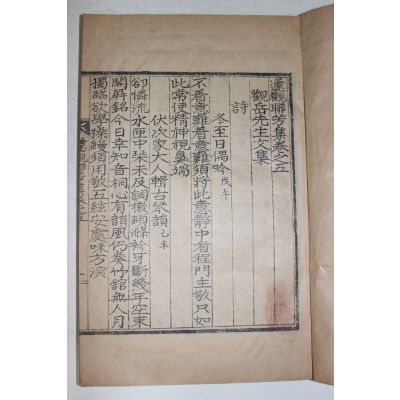 蓮觀聯芳集卷之五
觀岳先生文集
詩
冬至日偶吟 戊午
不着意難着意難須將此意靜中看程門主敬只如
此常使精神視鼻端
伏次家大人輯古琴韻 乙未
卻憐流水匣中琹不及調徽頭滌衿牙斷幾年空束
閣屛銘今日幸知音桐心有韻風仍奏竹館無人月
獨臨欲學操縵須用敬五絃安處味方深